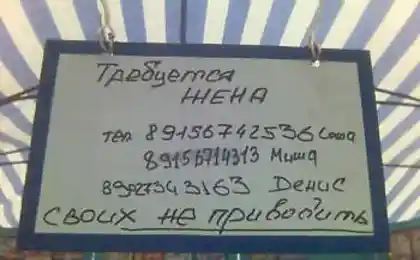 Требуется
ЖЕНА
тел 89156742536 Саша
89156714313 Миша
89027343163 Денис
своих не приводить